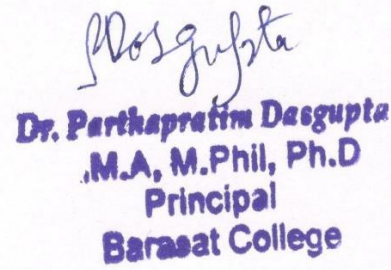 PDasgupta
Dr. Parthapratim Dasgupta
.M.A, M.Phil, Ph.D
Principal
Barasat College